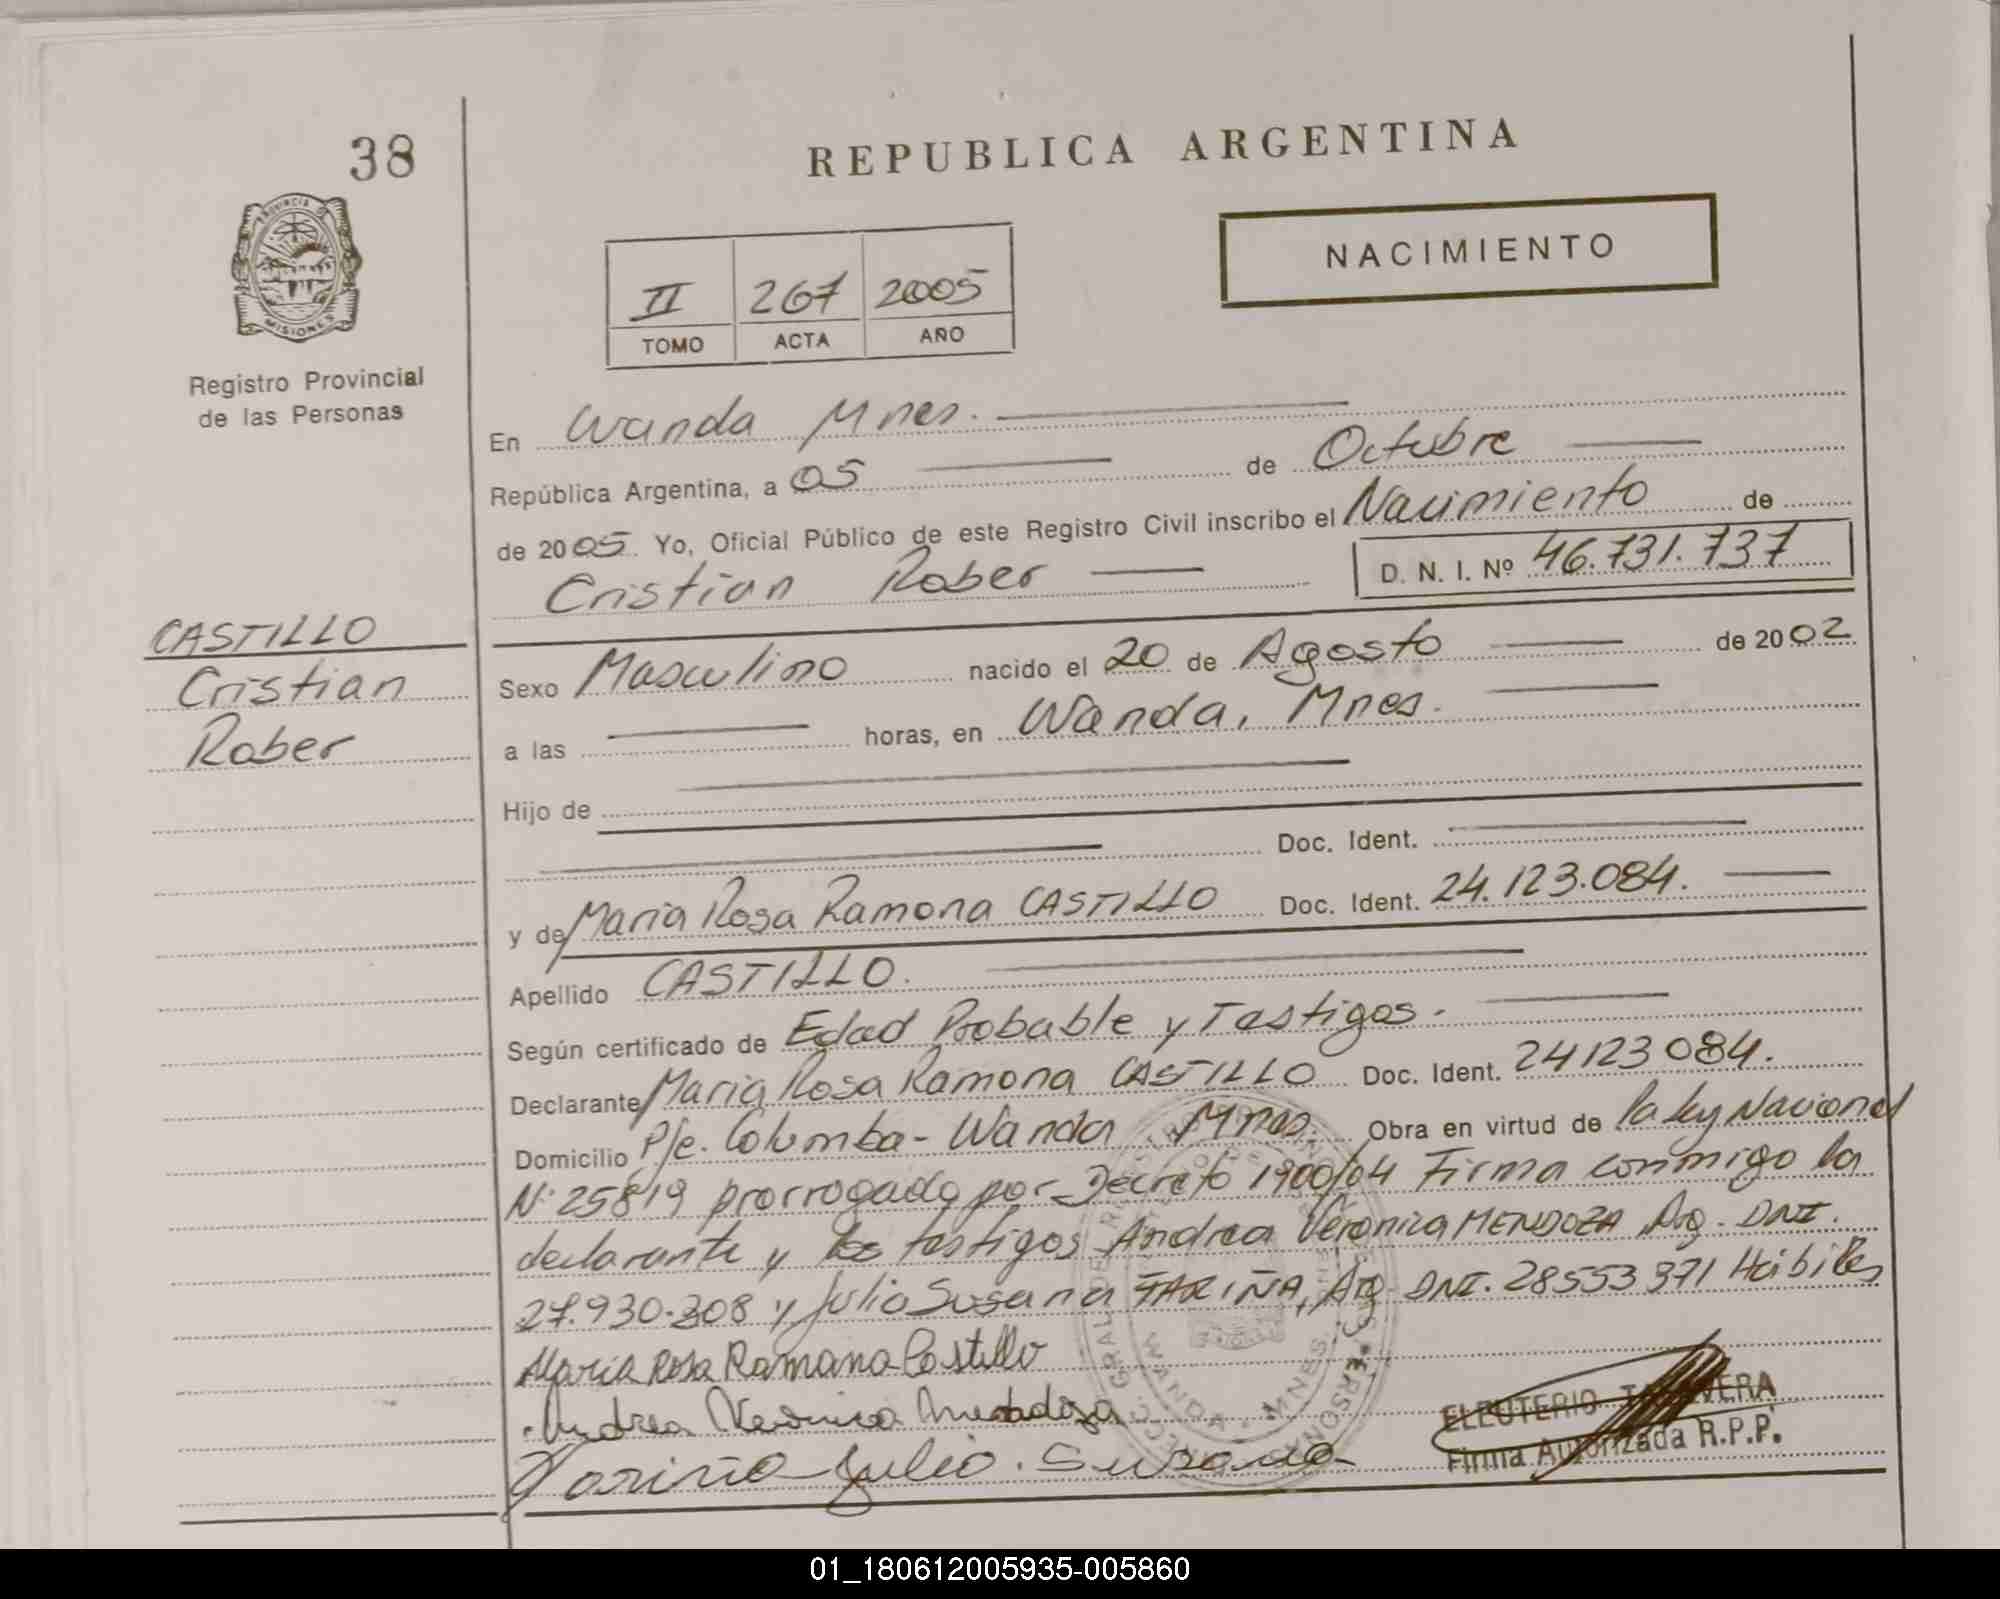 38
REPUBLICA ARGENTINA
NACIMIENTO
PROVINCIA DE
MISIONES
Registro Provincial
de las Personas
II 267 2005
TOMO ACTA AÑO
En Wanda Mnes.
República Argentina, a 05 de Octubre
de 2005. Yo, Oficial Público de este Registro Civil inscribo el Nacimiento de
Cristian Rober D. N. I. Nº 46.731.737
CASTILLO
Cristian
Rober
Sexo Masculino nacido el 20 de Agosto de 2002
a las horas, en Wanda, Mnes.
Hijo de
Doc. Ident.
y de Maria Rosa Ramona CASTILLO Doc. Ident. 24.123.084.
Apellido CASTILLO.
Según certificado de Edad Probable y Testigos.
Declarante Maria Rosa Ramona CASTILLO Doc. Ident. 24123084.
Domicilio Pje. Columba - Wanda Mnes. Obra en virtud de la ley Nacional
N° 25819 prorrogado por Decreto 1900/04 Firma conmigo la
declarante y los testigos Andrea Veronica MENDOZA Arg. DNI.
27.930.308 y Julia Susana FARIÑA, Arg. DNI. 28553371 Hábiles
Maria Rosa Ramona Castillo
Andrea Veronica Mendoza
Fariña Julia Susana
WANDA - MNES.
ELEUTERIO
Firma Autorizada R.P.P.
01_180612005935-005860